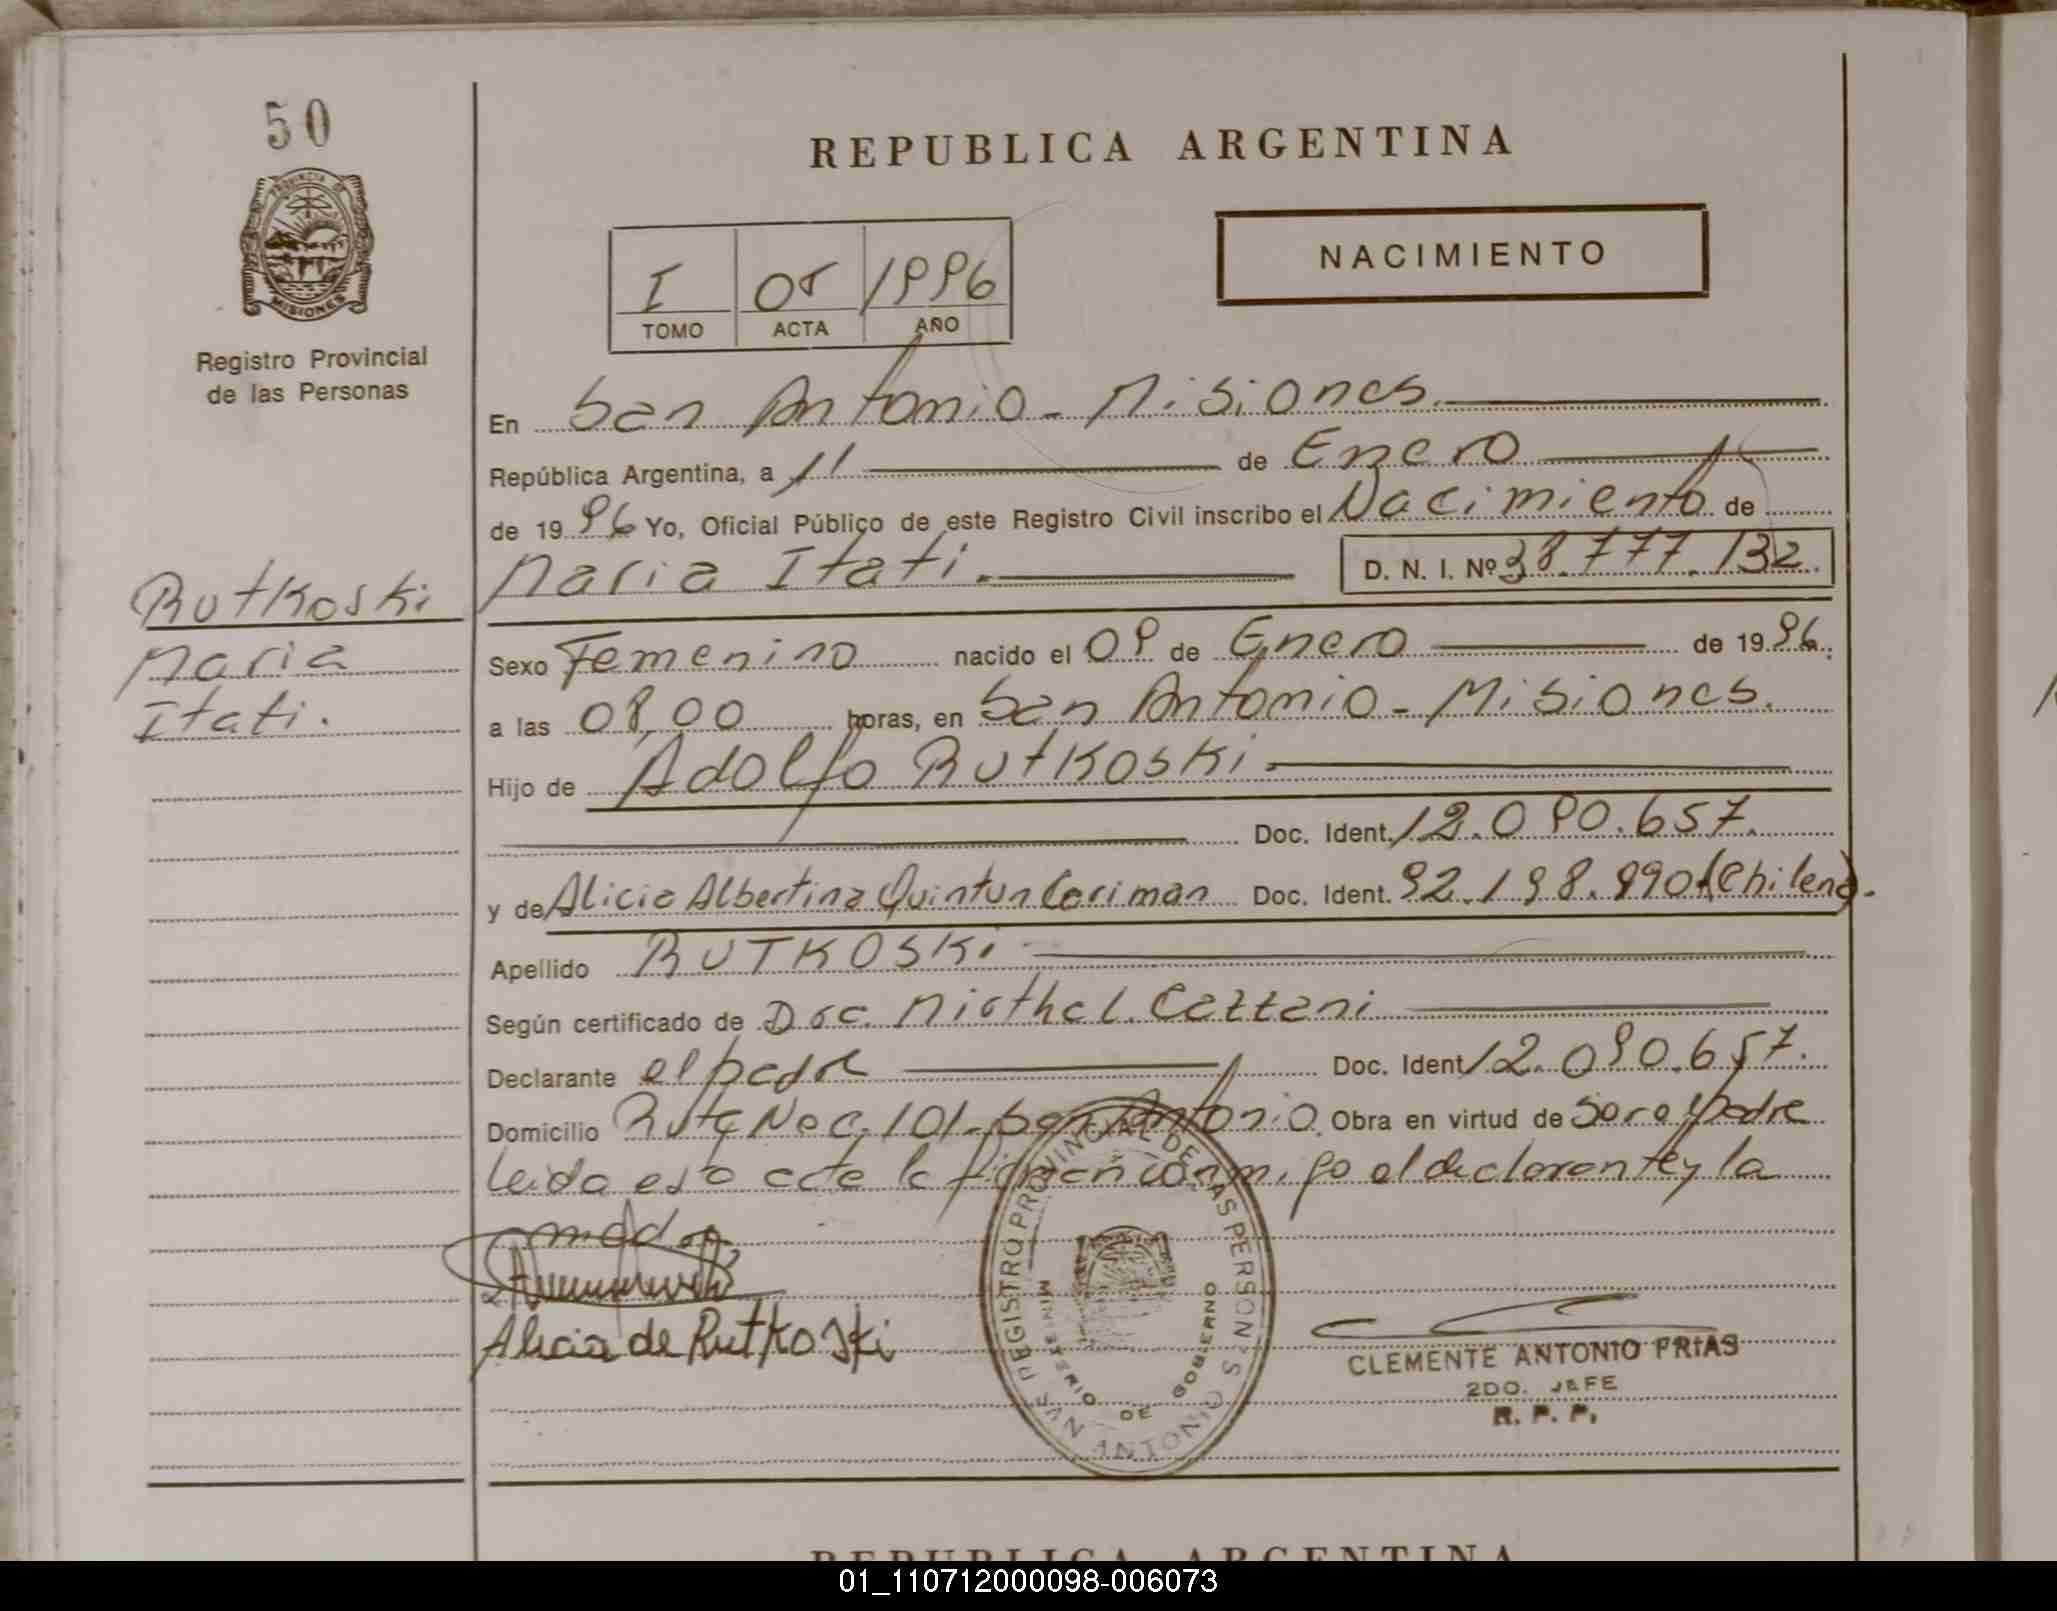 50
REPUBLICA ARGENTINA
PROVINCIA DE
MISIONES
NACIMIENTO
I 05 1996
TOMO ACTA AÑO
Registro Provincial
de las Personas
En San Antonio - Misiones.
República Argentina, a 11 de Enero
de 1996 Yo, Oficial Público de este Registro Civil inscribo el Nacimiento de
Maria Itati. D. N. I. Nº 38.777.132.
Rutkoski
Maria
Itati.
Sexo Femenino nacido el 09 de Enero de 1996.
a las 08,00 horas, en San Antonio - Misiones.
Hijo de Adolfo Rutkoski
Doc. Ident. 12.090.657.
y de Alicia Albertina Quintun Cariman Doc. Ident. 92.198.990 (Chilena).
Apellido RUTKOSKi
Según certificado de Doc. Cattani
Declarante el padre Doc. Ident 12.090.657.
Domicilio Ruta Nac. 101 - San Antonio. Obra en virtud de ser el padre
Leida esta acta la firman conmigo el declarante y la
madre
Alicia de Rutkoski
REGISTRO PROVINCIAL DE LAS PERSONAS
MINISTERIO DE GOBIERNO
CLEMENTE ANTONIO FRIAS
2DO. JEFE
R. P. P.
REPUBLICA ARGENTINA
01_110712000098-006073